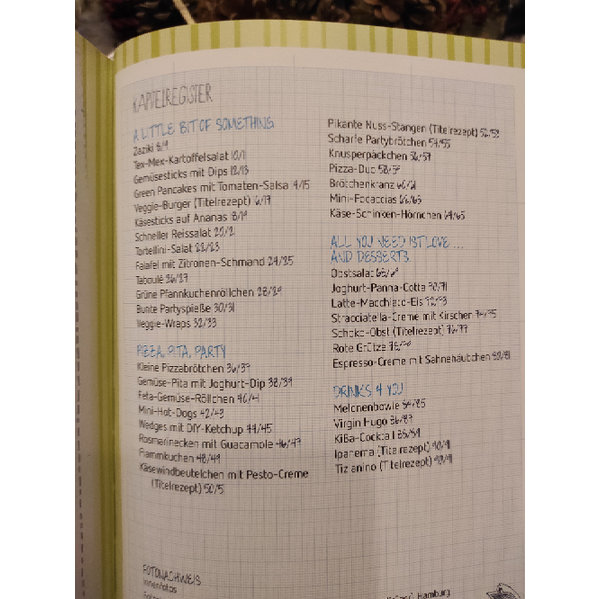 KAPITELREGISTER
A LITTLE BIT OF SOMETHING
Zaziki 8/9
Tex-Mex-Kartoffelsalat 10/11
Gemüsesticks mit Dips 12/13
Green Pancakes mit Tomaten-Salsa 14/15
Veggie-Burger (Titelrezept) 16/17
Käsesticks auf Ananas 18/19
Schneller Reissalat 20/21
Tortellini-Salat 22/23
Falafel mit Zitronen-Schmand 24/25
Taboulé 26/27
Grüne Pfannkuchenröllchen 28/29
Bunte Partyspieße 30/31
Veggie-Wraps 32/33
PIZZA, PITA, PARTY
Kleine Pizzabrötchen 36/37
Gemüse-Pita mit Joghurt-Dip 38/39
Feta-Gemüse-Röllchen 40/41
Mini-Hot-Dogs 42/43
Wedges mit DIY-Ketchup 44/45
Rosmarinecken mit Guacamole 46/47
Flammkuchen 48/49
Käsewindbeutelchen mit Pesto-Creme
(Titelrezept) 50/51
Pikante Nuss-Stangen (Titelrezept) 52/53
Scharfe Partybrötchen 54/55
Knusperpäckchen 56/57
Pizza-Duo 58/59
Brötchenkranz 60/61
Mini-Focaccias 62/63
Käse-Schinken-Hörnchen 64/65
ALL YOU NEED IS LOVE ...
AND DESSERTS
Obstsalat 68/69
Joghurt-Panna-Cotta 70/71
Latte-Macchiato-Eis 72/73
Stracciatella-Creme mit Kirschen 74/75
Schoko-Obst (Titelrezept) 76/77
Rote Grütze 78/79
Espresso-Creme mit Sahnehäubchen 80/81
DRINKS 4 YOU
Melonenbowle 84/85
Virgin Hugo 86/87
KiBa-Cocktail 88/89
Ipanema (Titelrezept) 90/91
Tizianino (Titelrezept) 90/91
FOTONACHWEIS
Innenfotos
Hamburg